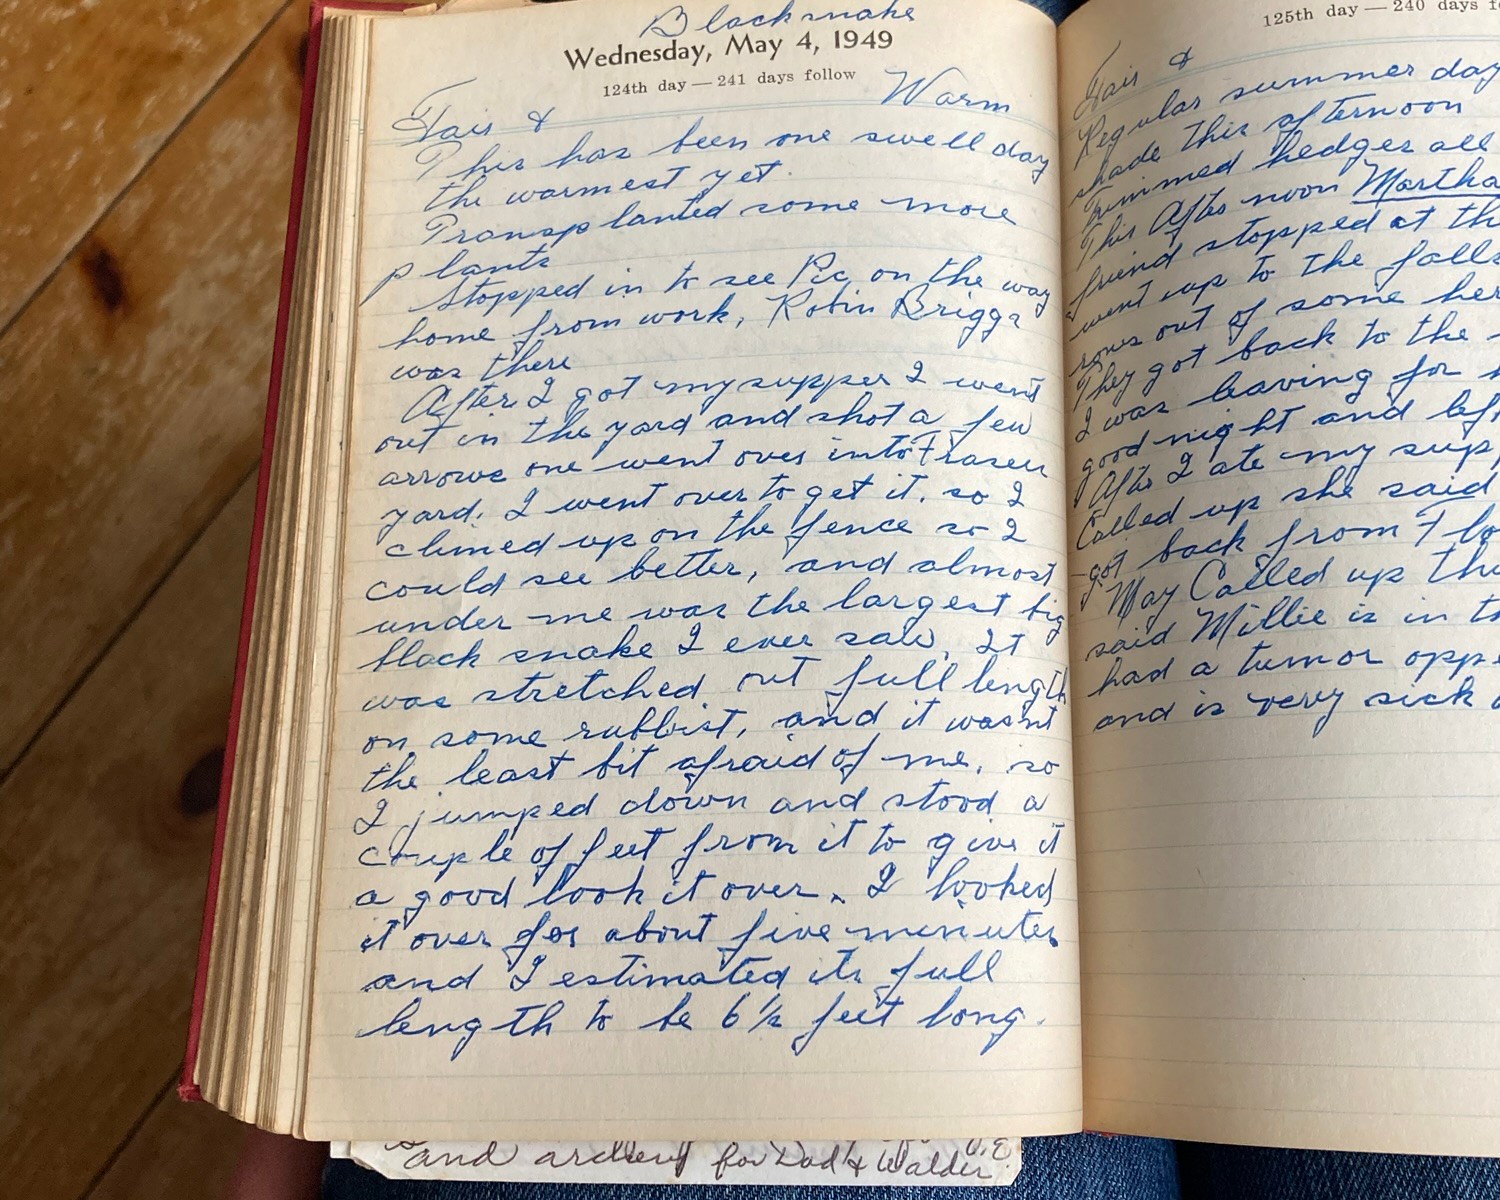 Blacksnake
Wednesday, May 4, 1949
124th day — 241 days follow
Fair & Warm
This has been one swell day
the warmest yet.
Transplanted some more
plants
Stopped in to see Pic on the way
home from work, Robin Briggs
was there
After I got my supper I went
out in the yard and shot a few
arrows one went over into Frasers
yard. I went over to get it, so I
climed up on the fence so I
could see better, and almost
under me was the largest big
black snake I ever saw, It
was stretched out full length
on some rubbist, and it wasnt
the least bit afraid of me, so
I jumped down and stood a
couple of feet from it to give it
a good look it over. I looked
it over for about five minutes
and I estimated its full
length to be 6 1/2 feet long.
and archery for Dad & Walder
125th day — 240 days
Fair &
Regular summer day
shade this afternoon
Trimmed hedges all
This After noon Martha
friend stopped at th
went up to the falls
out of some her
They got back to the
I was leaving for
good night and lef
After I ate my supp
Called up she said
got back from Flo
May Called up th
said Millie is in t
had a tumor oppe
and is very sick